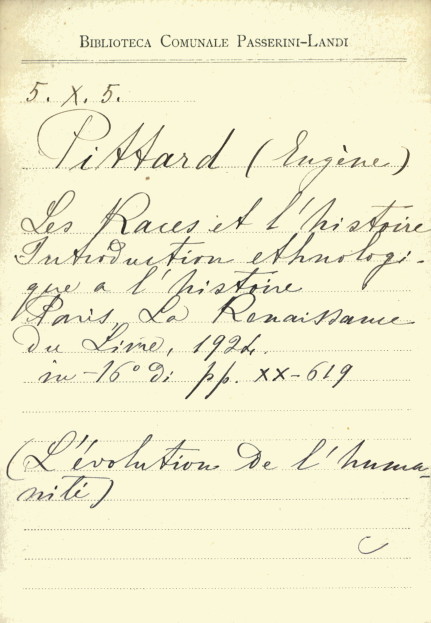 BIBLIOTECA COMUNALE PASSERINI-LANDI
5. X. 5.
Pittard (Eugène)
Les Races et l'histoire
Introduction ethnologi-
que a l'histoire
Paris, La Renaissance
du Livre, 1924.
in-16° di pp. XX-619
(L'évolution de l'huma-
nité)
C